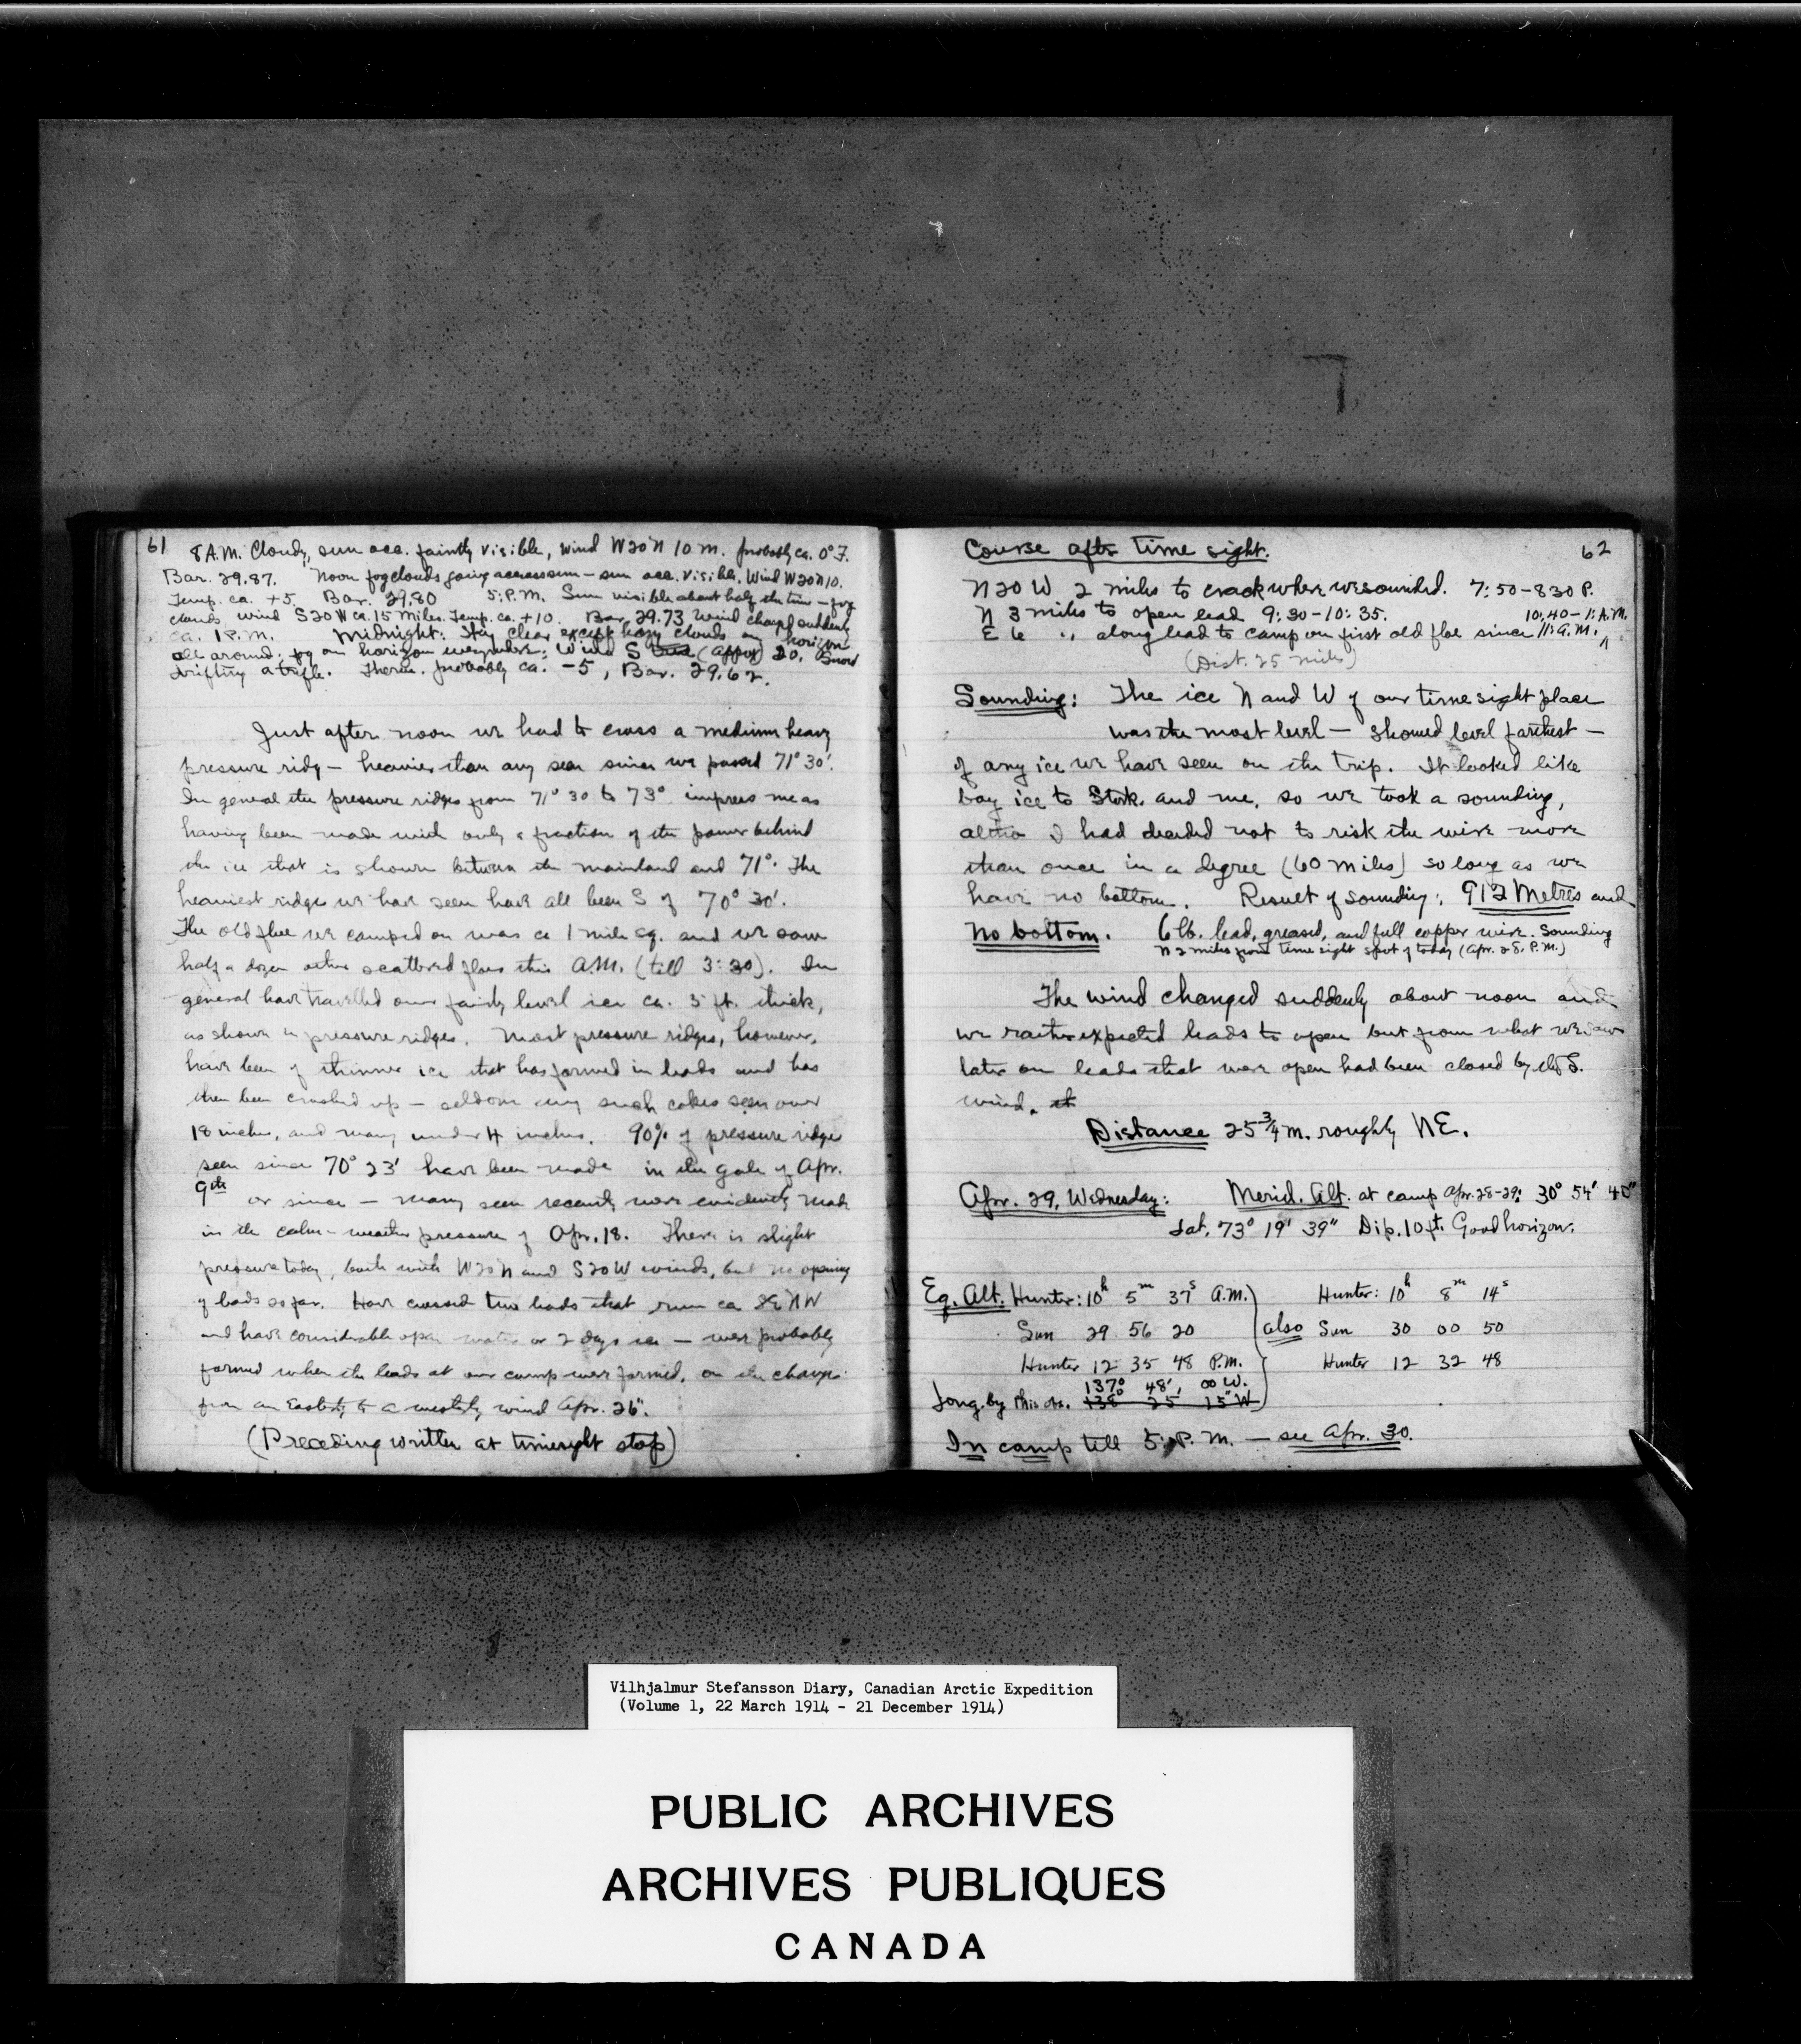 61
8 A.M. Cloudy, sun occ. faintly visible, wind W20N 10 m. probably ca. 0° F.
Bar. 29.87. Noon fog clouds going across sun – sun occ. visible. Wind W20N 10.
Temp. ca. +5. Bar. 29.80 5: P.M. Sun visible about half the time – fog
clouds, wind S20W ca. 15 miles. Temp. ca. +10. Bar. 29.73 Wind changed suddenly
ca. 1 P.M. Midnight: Sky clear except hazy clouds on horizon
all around, fog on horizon everywhere. Wind S (approx) 20. Snow
drifting a trifle. Therm. probably ca. -5, Bar. 29.62.
Just after noon we had to cross a medium heavy
pressure ridge – heavier than any seen since we passed 71° 30'.
In general the pressure ridges from 71° 30 to 73° impress me as
having been made with only a fraction of the power behind
the ice that is shown between the mainland and 71°. The
heaviest ridges we have seen have all been S of 70° 30'.
The old floe we camped on was ca 1 mile sq. and we saw
half a dozen other scattered floes this A.M. (till 3:30). In
general have travelled over fairly level ice ca. 3 ft. thick,
as shown in pressure ridges. Most pressure ridges, however,
have been of thinner ice that has formed in leads and has
then been crushed up – seldom any such cakes seen over
18 inches, and many under 4 inches. 90% of pressure ridges
seen since 70° 23' have been made in the gale of Apr.
9th or since – many seen recently were evidently made
in the calm-weather pressure of Apr. 18. There is slight
pressure today, both with W20N and S20W winds, but no opening
of leads so far. Have crossed two leads that run ca SE NW
and have considerable open water or 2 days ice – were probably
formed when the leads at our camp were formed, on the change
from an Easterly to a westerly wind Apr. 26".
(Preceding written at timesight stop)
Course after time sight. 62
N20W 2 miles to crack where we sounded. 7:50–830 P.
N 3 miles to open lead 9:30–10:35. 10:40–1: A.M.
E 6 " along lead to camp on first old floe since 11: A.M.
(Dist. 25 miles)
Sounding: The ice N and W of our timesight place
was the most level – showed level farthest –
of any ice we have seen on the trip. It looked like
bay ice to Stork. and me, so we took a sounding,
altho I had decided not to risk the wire more
than once in a degree (60 miles) so long as we
have no bottom. Result of sounding: 912 Metres and
No bottom. 6 lb. lead, greased, and full copper wire. Sounding
N 2 miles from time sight spot of today (Apr. 28. P.M.)
The wind changed suddenly about noon and
we rather expected leads to open but from what we saw
later on leads that were open had been closed by the S.
wind.
Distance 25 3/4 m. roughly NE.
Apr. 29, Wednesday: Merid. Alt. at camp Apr. 28-29: 30° 54' 40"
Lat. 73° 19' 39" Dip. 10 ft. Good horizon.
Eq. Alt. Hunter: 10h 5m 37s A.M. Hunter: 10h 8m 14s
Sun 29 56 20 also Sun 30 00 50
Hunter 12 35 48 P.M. Hunter 12 32 48
137° 48', 00 W.
Long. by this obs. 138° 25 15" W
In camp till 5: P.M. – see Apr. 30.
Vilhjalmur Stefansson Diary, Canadian Arctic Expedition
(Volume 1, 22 March 1914 - 21 December 1914)
PUBLIC ARCHIVES
ARCHIVES PUBLIQUES
CANADA